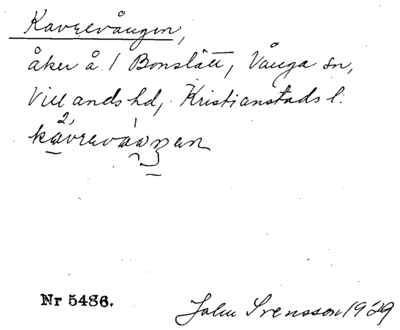 Kavrevången,
åker å 1 Bonslätt, Vånga sn,
Villands hd, Kristianstads l.
Nr 5486.
John Svensson 1929